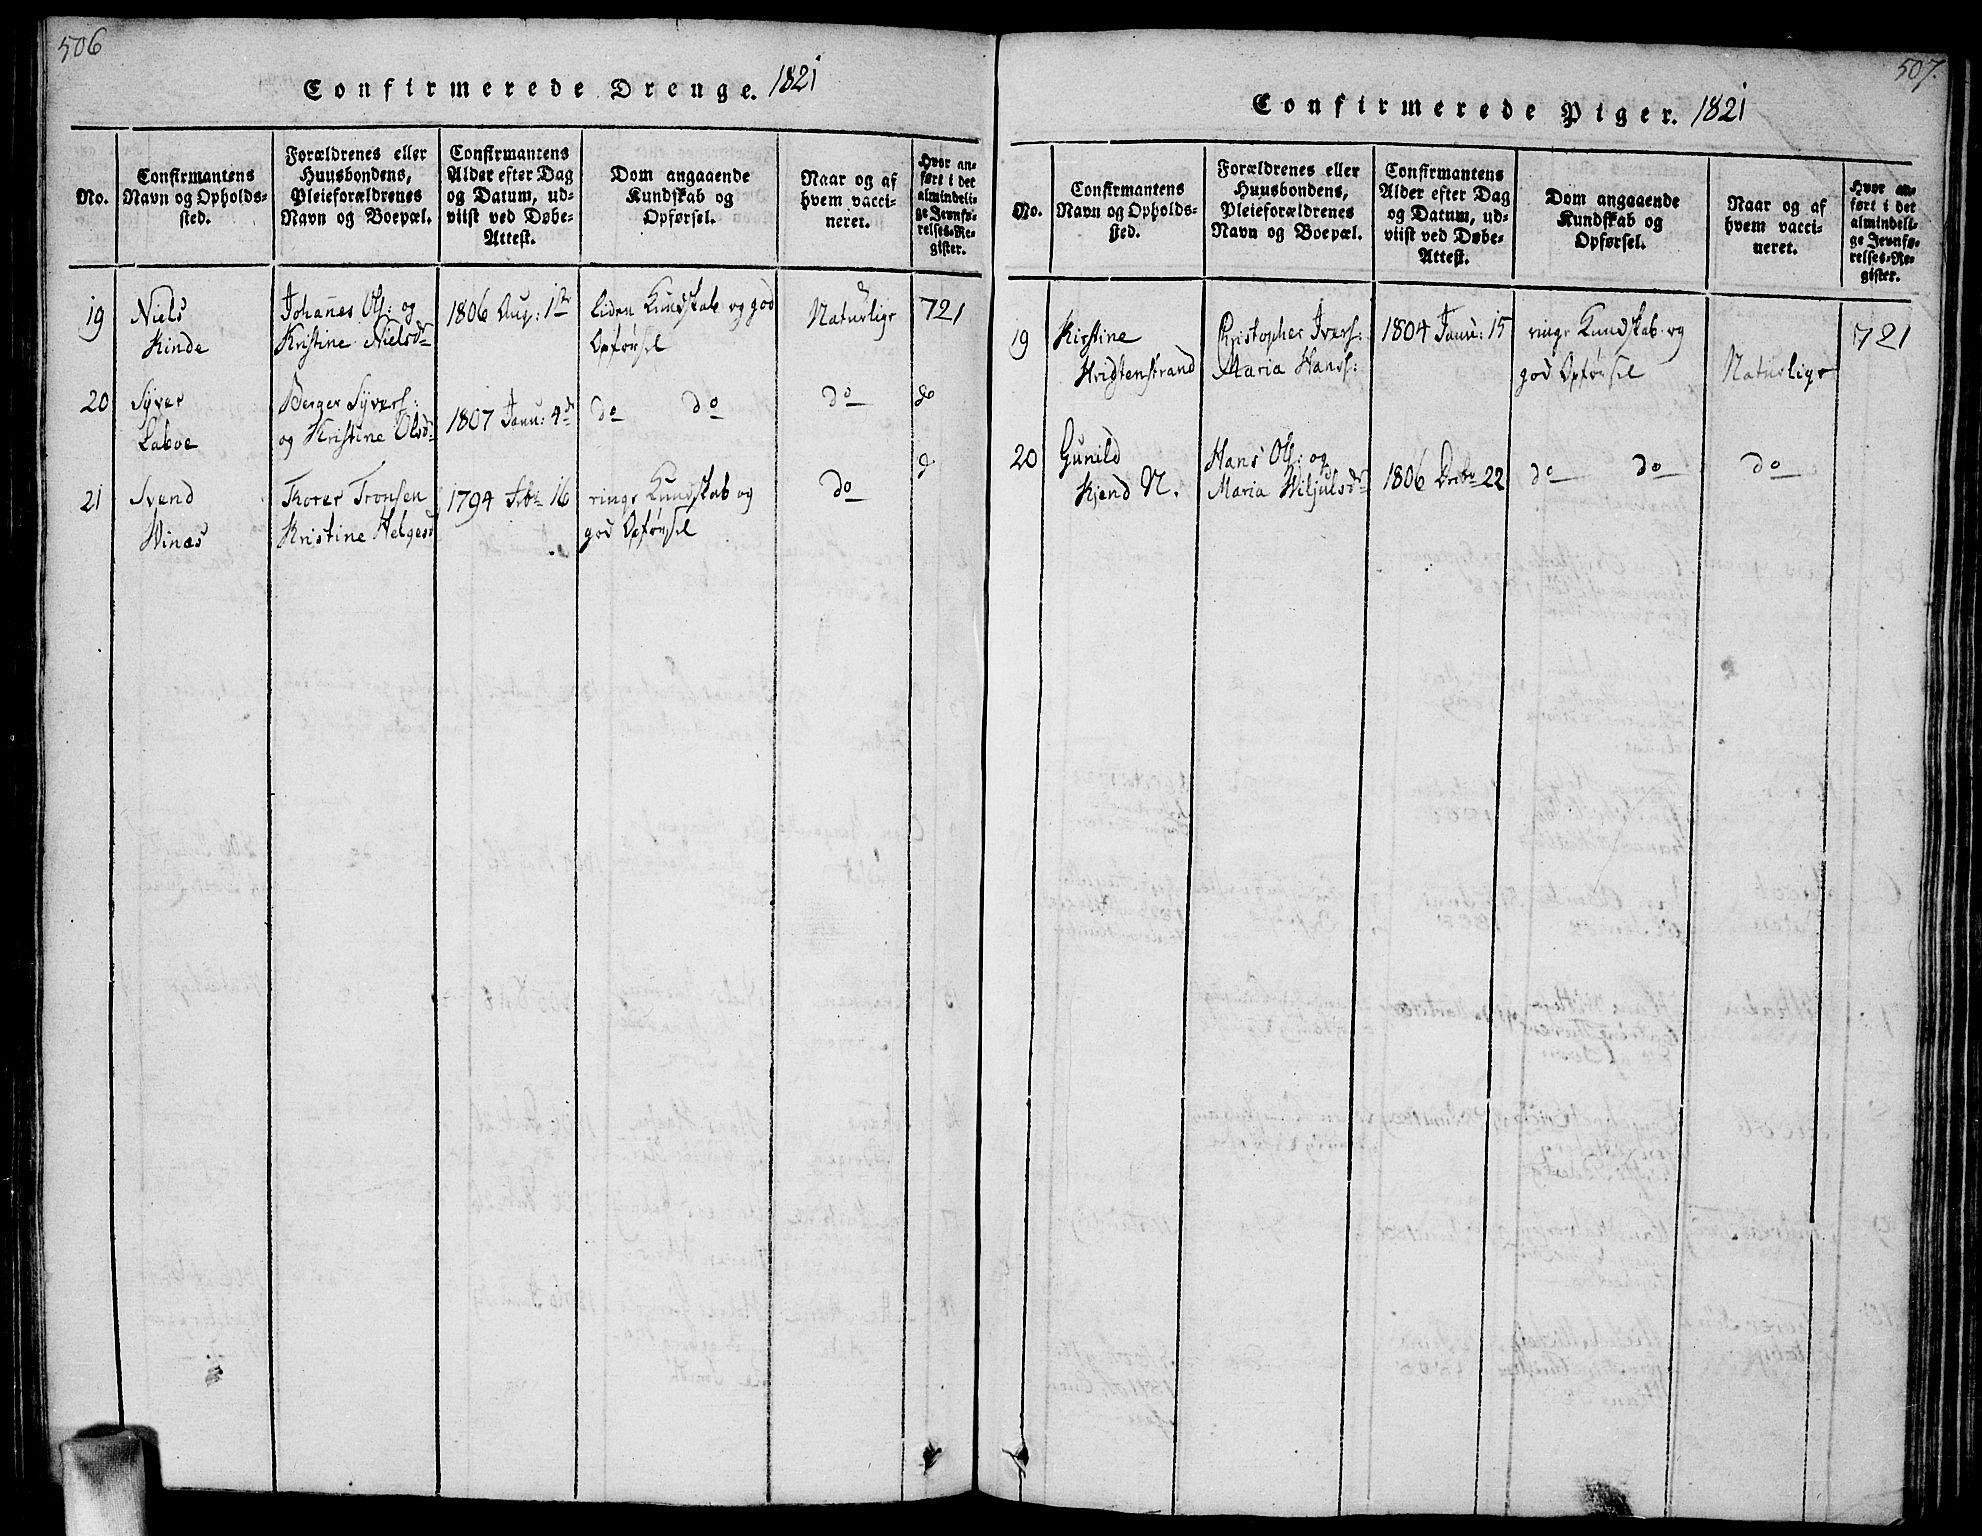 506
Confirmerede Drenge. 1821
No.
Confirmantens
Navn og Opholds-
sted.
Forældrenes eller
Huusbondens,
Pleieforældrenes
Navn og Boepæl.
Confirmantens
Alder efter Dag
og Datum, ud-
viist ved Døbe-
Attest.
Dom angaaende
Kundskab og
Opførsel.
Naar og af
hvem vacci-
neret.
Hvor an-
ført i det
almindeli-
ge Jevnfø-
relses-Re-
gister.
19 Niels
Kinde
Johanes Ols: og
Kristine Nielsdr
1806 Aug: 1ste
liden Kundskab og god
Opførsel
Naturlige
721
20 Syver
Labve
Berger Syvers:
og Kristine Olsdr
1807 Janu: 4de
do do
do
do
21 Svend
Winæs
Thorer Tronsen
Kristine Helgesd
1794 Febr 16
ringe Kundskab og
god Opførsel
do
d
507.
Confirmerede Piger. 1821
No.
Confirmantens
Navn og Opholds-
sted.
Forældrenes eller
Huusbondens,
Pleieforældrenes
Navn og Boepæl.
Confirmantens
Alder efter Dag
og Datum, ud-
viist ved Døbe-
Attest.
Dom angaaende
Kundskab og
Opførsel.
Naar og af
hvem vacci-
neret.
Hvor an-
ført i det
almindeli-
ge Jevnfø-
relses-Re-
gister.
19 Kirstine
Hvidtenstrand
Christopher Ivers:
Maria Hans:
1804 Janu: 15
ringe Kundskab og
god Opførsel
Naturlige
721
20 Gunild
Kjend N.
Hans Ols: og
Maria Hiljulsdr
1806 Decbr 22
do do
do